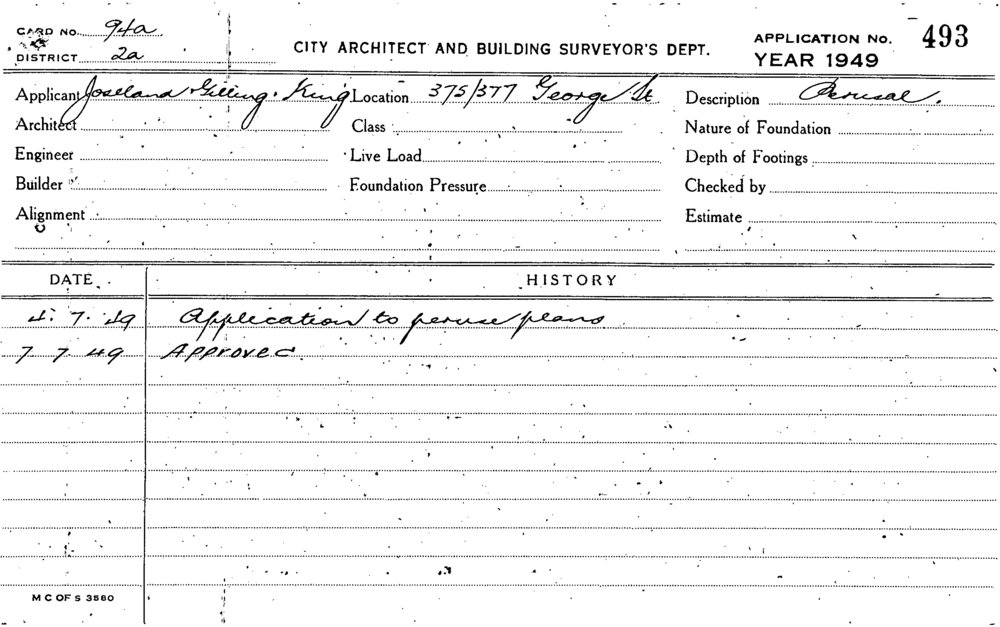 CARD NO. 94a
DISTRICT 2a
CITY ARCHITECT AND BUILDING SURVEYOR'S DEPT.
APPLICATION No. 493
YEAR 1949
Applicant Joseland Gilling. King Location 375/377 George St Description Perusal.
Architect Class Nature of Foundation
Engineer Live Load Depth of Footings
Builder Foundation Pressure Checked by
Alignment Estimate
DATE HISTORY
4. 7. 49 Application to peruse plans
7 7 49 Approved
M C OF S 3580